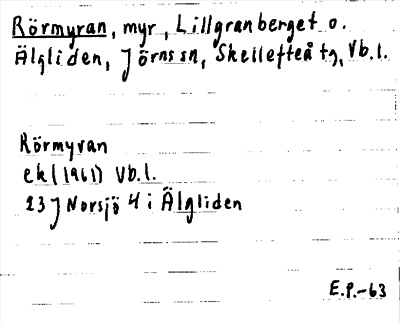 Rörmyran, myr, Lillgranberget o.
Älgliden, Jörns sn, Skellefteå tg, Vb.l.
Rörmyran
ek (1961) Vb.l.
23 J Norsjö 4 i Älgliden
E.P.-63